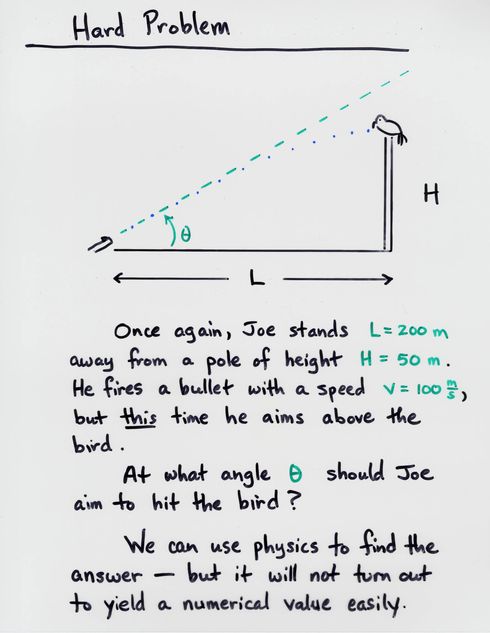 Hard Problem
H
θ
L
Once again, Joe stands L = 200 m
away from a pole of height H = 50 m.
He fires a bullet with a speed v = 100 m/s,
but this time he aims above the
bird.
At what angle θ should Joe
aim to hit the bird?
We can use physics to find the
answer — but it will not turn out
to yield a numerical value easily.